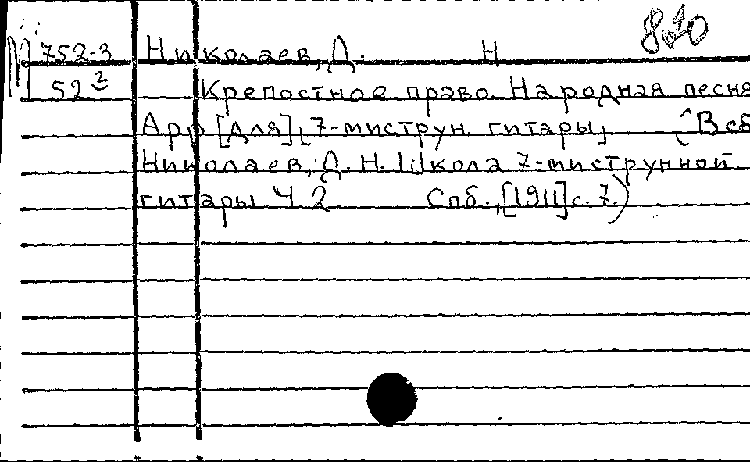 820
М 752-3 Николаев, Д. Н
52² Крепостное право. Народная песня
Арр [для] 7-миструн. гитары, (В сб
Николаев, Д. Н. Школа 7-миструнной
гитары Ч 2 Спб., [1911] с. 7.)